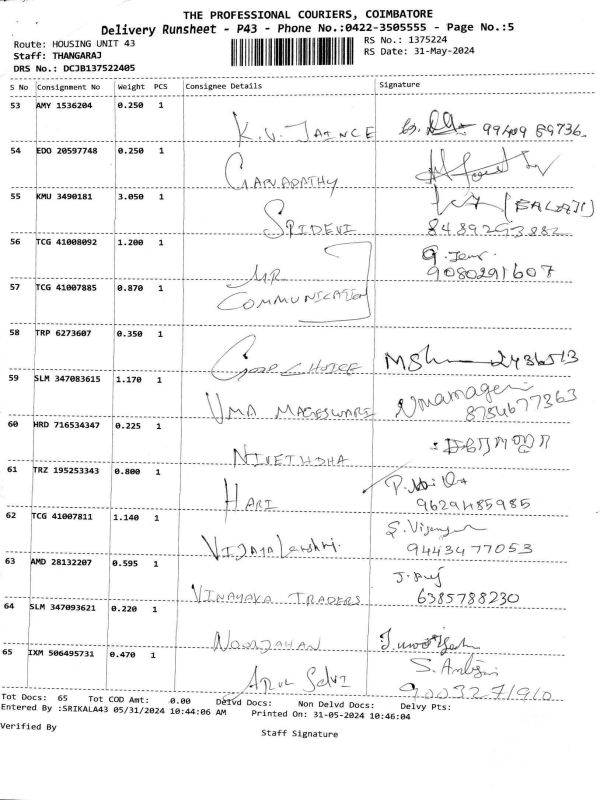 THE PROFESSIONAL COURIERS, COIMBATORE
Delivery Runsheet - P43 - Phone No.:0422-3505555 - Page No.:5
Route: HOUSING UNIT 43
RS No.: 1375224
Staff: THANGARAJ
RS Date: 31-May-2024
DRS No.: DCJB137522405
S No Consignment No Weight PCS Consignee Details Signature
53 AMY 1536204 0.250 1
K.V. JAINCE 99409 89736.
54 EDO 20597748 0.250 1
GANAPATHY
55 KMU 3490181 3.050 1
(BALAJI)
SRIDEVI 8489293882
56 TCG 41008092 1.200 1
MR 9080291607
57 TCG 41007885 0.870 1
COMMUNICATION
58 TRP 6273607 0.350 1
CHOICE 2436513
59 SLM 347083615 1.170 1
UMA MAGESWARI Umamageri
8754677363
60 HRD 716534347 0.225 1
NIVETHDHA
61 TRZ 195253343 0.800 1
HARI 9629485985
62 TCG 41007811 1.140 1
VIJAYA Lakshmi. 9443477053
63 AMD 28132207 0.595 1
VINAYAKA TRADERS 6385788230
64 SLM 347093621 0.220 1
NOORJAHAN
65 IXM 506495731 0.470 1
ARUL Selvi 9003271910
Tot Docs: 65 Tot COD Amt: 0.00 Delvd Docs: Non Delvd Docs: Delvy Pts:
Entered By :SRIKALA43 05/31/2024 10:44:06 AM Printed On: 31-05-2024 10:46:04
Verified By
Staff Signature